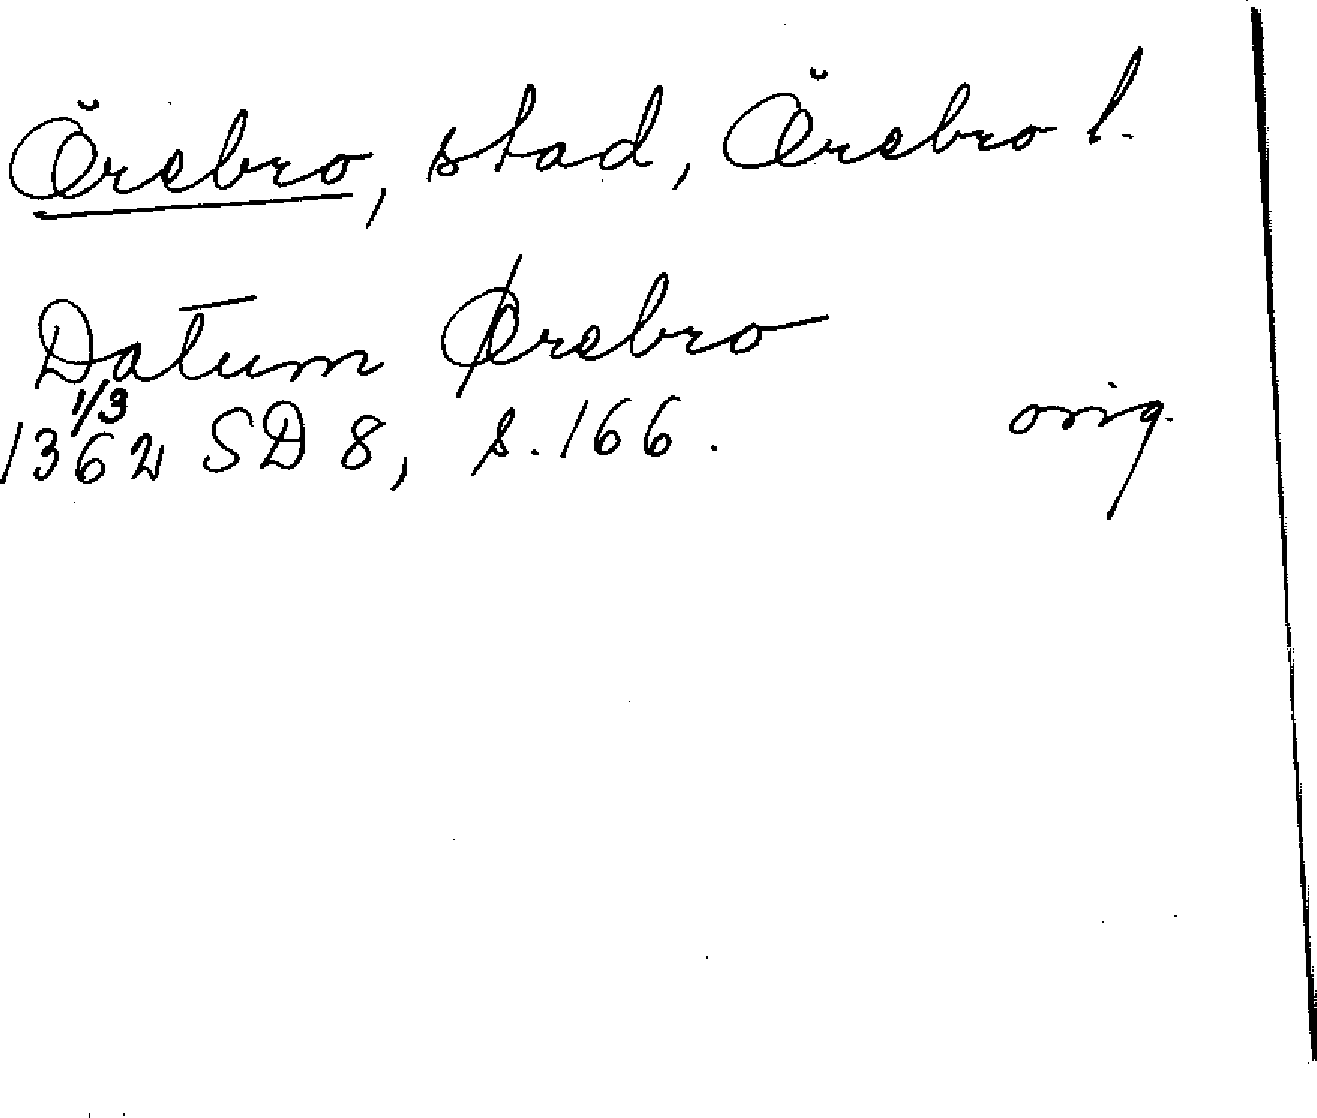 Örebro, stad, Örebro l.
Datum Ørebro
1/3
1362 SD 8, s. 166. orig.